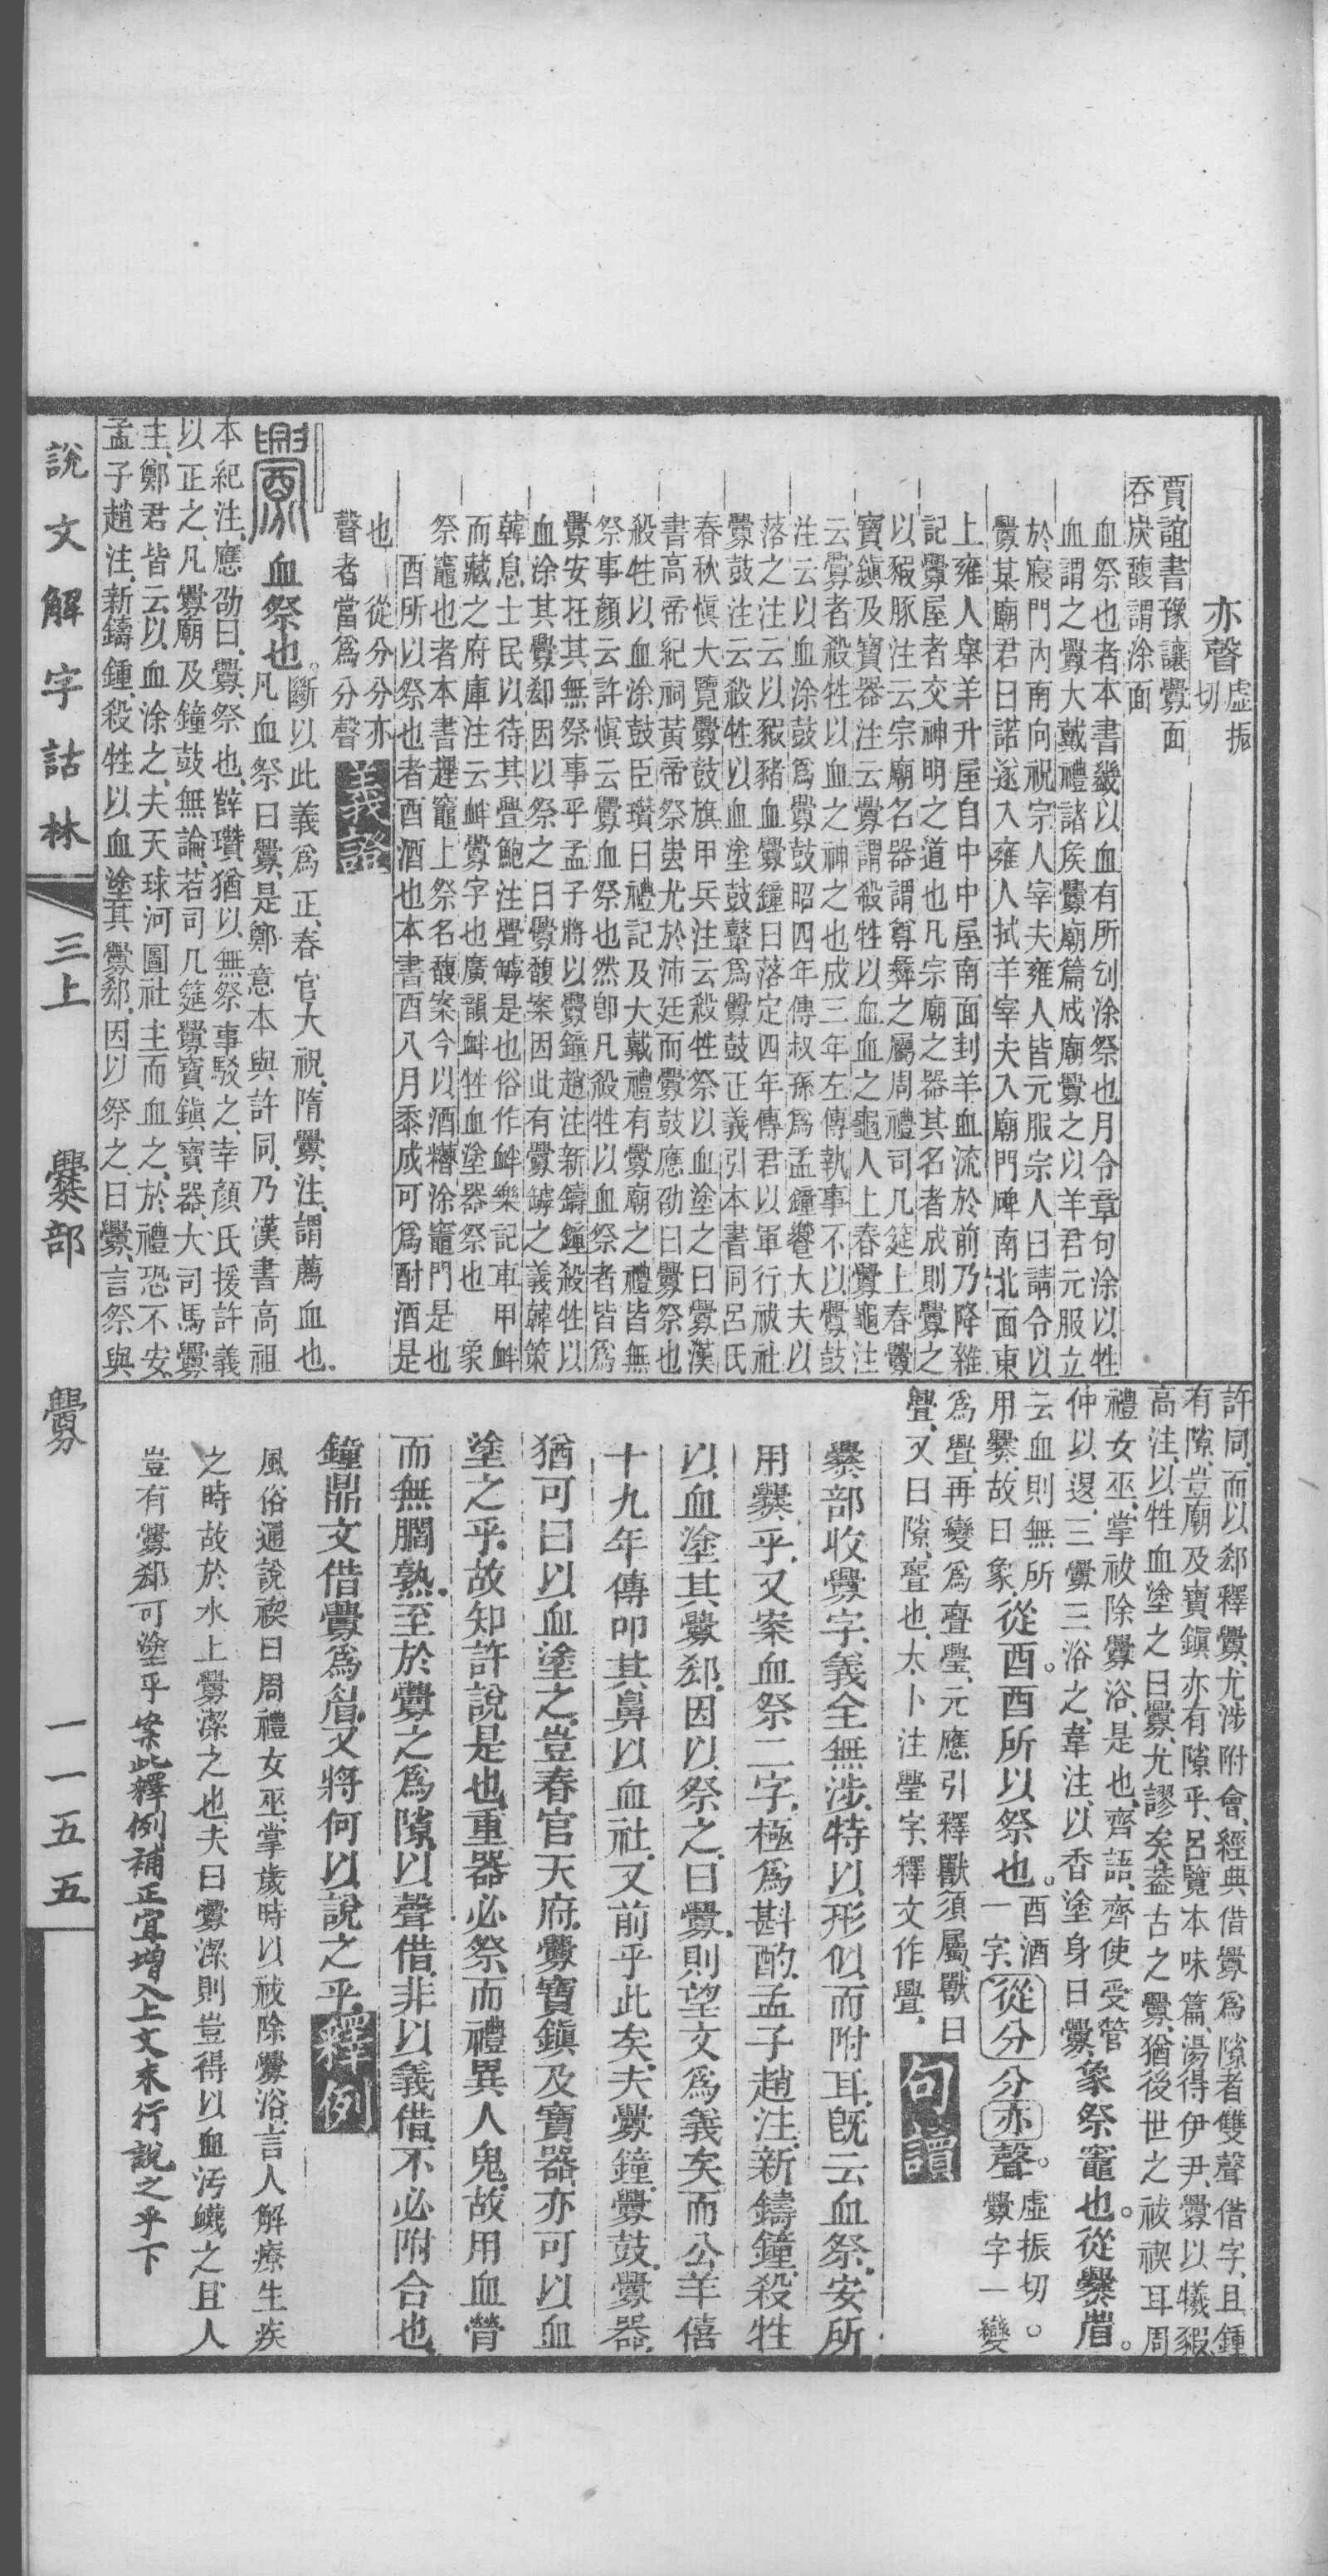 亦聲虛振
切
賈誼書豫讓釁面
吞炭馥謂涂面
血祭也者本書畿以血有所刉涂祭也月令章句涂以牲
血謂之釁大戴禮諸矦釁廟篇成廟釁之以羊君元服立
於寢門內南向祝宗人宰夫雍人皆元服宗人曰請令以
釁某廟君曰諾遂入雍人拭羊宰夫入廟門碑南北面東
上雍人舉羊升屋自中中屋南面刲羊血流於前乃降雜
記釁屋者交神明之道也凡宗廟之器其名者成則釁之
以豭豚注云宗廟名器謂尊彝之屬周禮司几筵上春釁
寶鎮及寶器注云釁謂殺牲以血血之龜人上春釁龜注
云釁者殺牲以血之神之也成三年左傳執事不以釁鼓
注云以血涂鼓爲釁鼓昭四年傳叔孫爲孟鐘饗大夫以
落之注云以豭豬血釁鐘曰落定四年傳君以軍行祓社
釁鼓注云殺牲以血塗鼓鼙爲釁鼓正義引本書同呂氏
春秋愼大覽釁鼓旗甲兵注云殺牲祭以血塗之曰釁漢
書高帝紀祠黃帝祭蚩尤於沛廷而釁鼓應劭曰釁祭也
殺牲以血涂鼓臣瓚曰禮記及大戴禮有釁廟之禮皆無
祭事顏云許愼云釁血祭也然卽凡殺牲以血祭者皆爲
釁安在其無祭事乎孟子將以釁鐘趙注新鑄鐘殺牲以
血涂其釁郄因以祭之曰釁馥案因此有釁罅之義韓策
韓息士民以待其釁鮑注釁罅是也俗作衅樂記車甲衅
而藏之府庫注云衅釁字也廣韻衅牲血塗器祭也 象
祭竈也者本書𤏷竈上祭名馥案今以酒糟涂竈門是也
酉所以祭也者酉酒也本書酉八月黍成可爲酎酒是
也 從分分亦
聲者當爲分聲義證
釁血祭也。斷以此義爲正、春官大祝、隋釁、注、謂薦血也、
凡血祭曰釁、是鄭意本與許同、乃漢書高祖
本紀注、應劭曰、釁、祭也、䇂瓚猶以無祭事駁之、幸顏氏援許義
以正之、凡釁廟及鐘鼓無論、若司几筵釁寶鎮、寶器、大司馬釁
主、鄭君皆云以血涂之、夫天球河圖社主而血之、於禮恐不安、
孟子趙注、新鑄鍾、殺牲以血塗其釁郄、因以祭之、曰釁、言祭與
許同、而以郄釋釁、尤涉附會、經典借釁爲隙者雙聲借字、且鍾
有隙、豈廟及寶鎮亦有隙乎、呂覽本味篇、湯得伊尹、釁以犧豭、
高注、以牲血塗之曰釁、尤謬矣、蓋古之釁、猶後世之祓禊耳、周
禮女巫、掌祓除釁浴、是也、齊語、齊使受管
仲以退、三釁三浴之、韋注、以香塗身曰釁、象祭竈也。從爨省。
云血則無所
用爨、故曰象、從酉。酉所以祭也。酉酒
一字、從分分亦聲。虛振切。
釁字一變
爲舋、再變爲亹璺、元應引釋獸須屬、獸曰
舋、又曰、隙、舋也、太卜注璺字、釋文作舋、句讀
爨部收釁字、義全無涉、特以形似而附耳、旣云血祭、安所
用爨乎、又案血祭二字、極爲斟酌、孟子趙注、新鑄鐘、殺牲
以血塗其釁郄、因以祭之、曰釁、則望文爲義矣、而公羊僖
十九年傳叩其鼻以血社、又前乎此矣、夫釁鐘、釁鼓、釁器、
猶可曰以血塗之、豈春官天府、釁寶鎮及寶器、亦可以血
塗之乎、故知許說是也、重器必祭、而禮異人鬼、故用血膋
而無膶熟、至於釁之爲隙、以聲借、非以義借、不必附合也、
鐘鼎文借釁爲眉、又將何以說之乎、釋例
風俗通說禊曰周禮女巫、掌歲時以祓除釁浴、言人解療生疾
之時故於水上釁潔之也、夫曰釁潔則豈得以血汚衊之且人
豈有釁郄可塗乎案此釋例補正宜增入上文末行說之乎下
說文解字詁林 三上 爨部 釁 一一五五